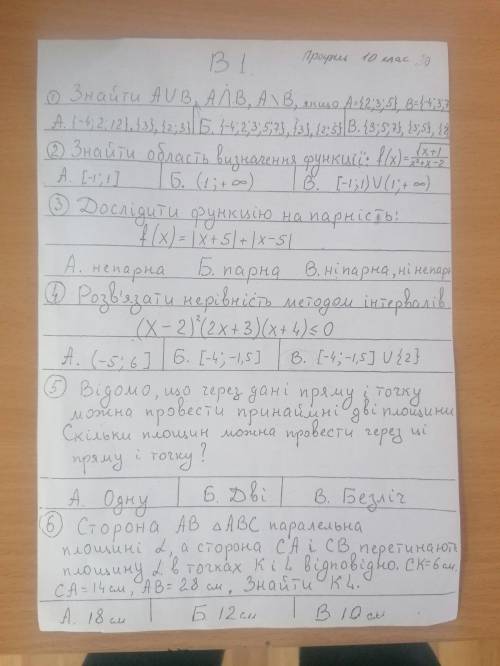 В 1.
Профиль 10 клас
① Знайти A∪B, A∩B, A\B, якщо A={2;3;5}, B={-4;3;7
А. {-4;2;12}, {3}, {2;3} Б. {-4;2;3;5;7}, {3}, {2;5} В. {3;5;7}, {3;5}, {2
② Знайти область визначення функції: f(x)=√(x+1)/(x²+x-2)
А. [-1;1] Б. (1;+∞) В. [-1;1)∪(1;+∞)
③ Дослідити функцію на парність:
f(x)=|x+5|+|x-5|
А. непарна Б. парна В. ні парна, ні непарн
④ Розв'язати нерівність методом інтервалів.
(x-2)²(2x+3)(x+4)≤0
А. (-5;6] Б. [-4;-1,5] В. [-4;-1,5]∪{2}
⑤ Відомо, що через дані пряму і точку
можна провести принаймні дві площини
Скільки площин можна провести через ці
пряму і точку?
А. Одну Б. Дві В. Безліч
⑥ Сторона AB △ABC паралельна
площині α, а сторона CA і CB перетинають
площину α в точках K і L відповідно. CK=6см,
CA=14см, AB=28см, Знайти KL.
А. 18см Б. 12см В. 10см